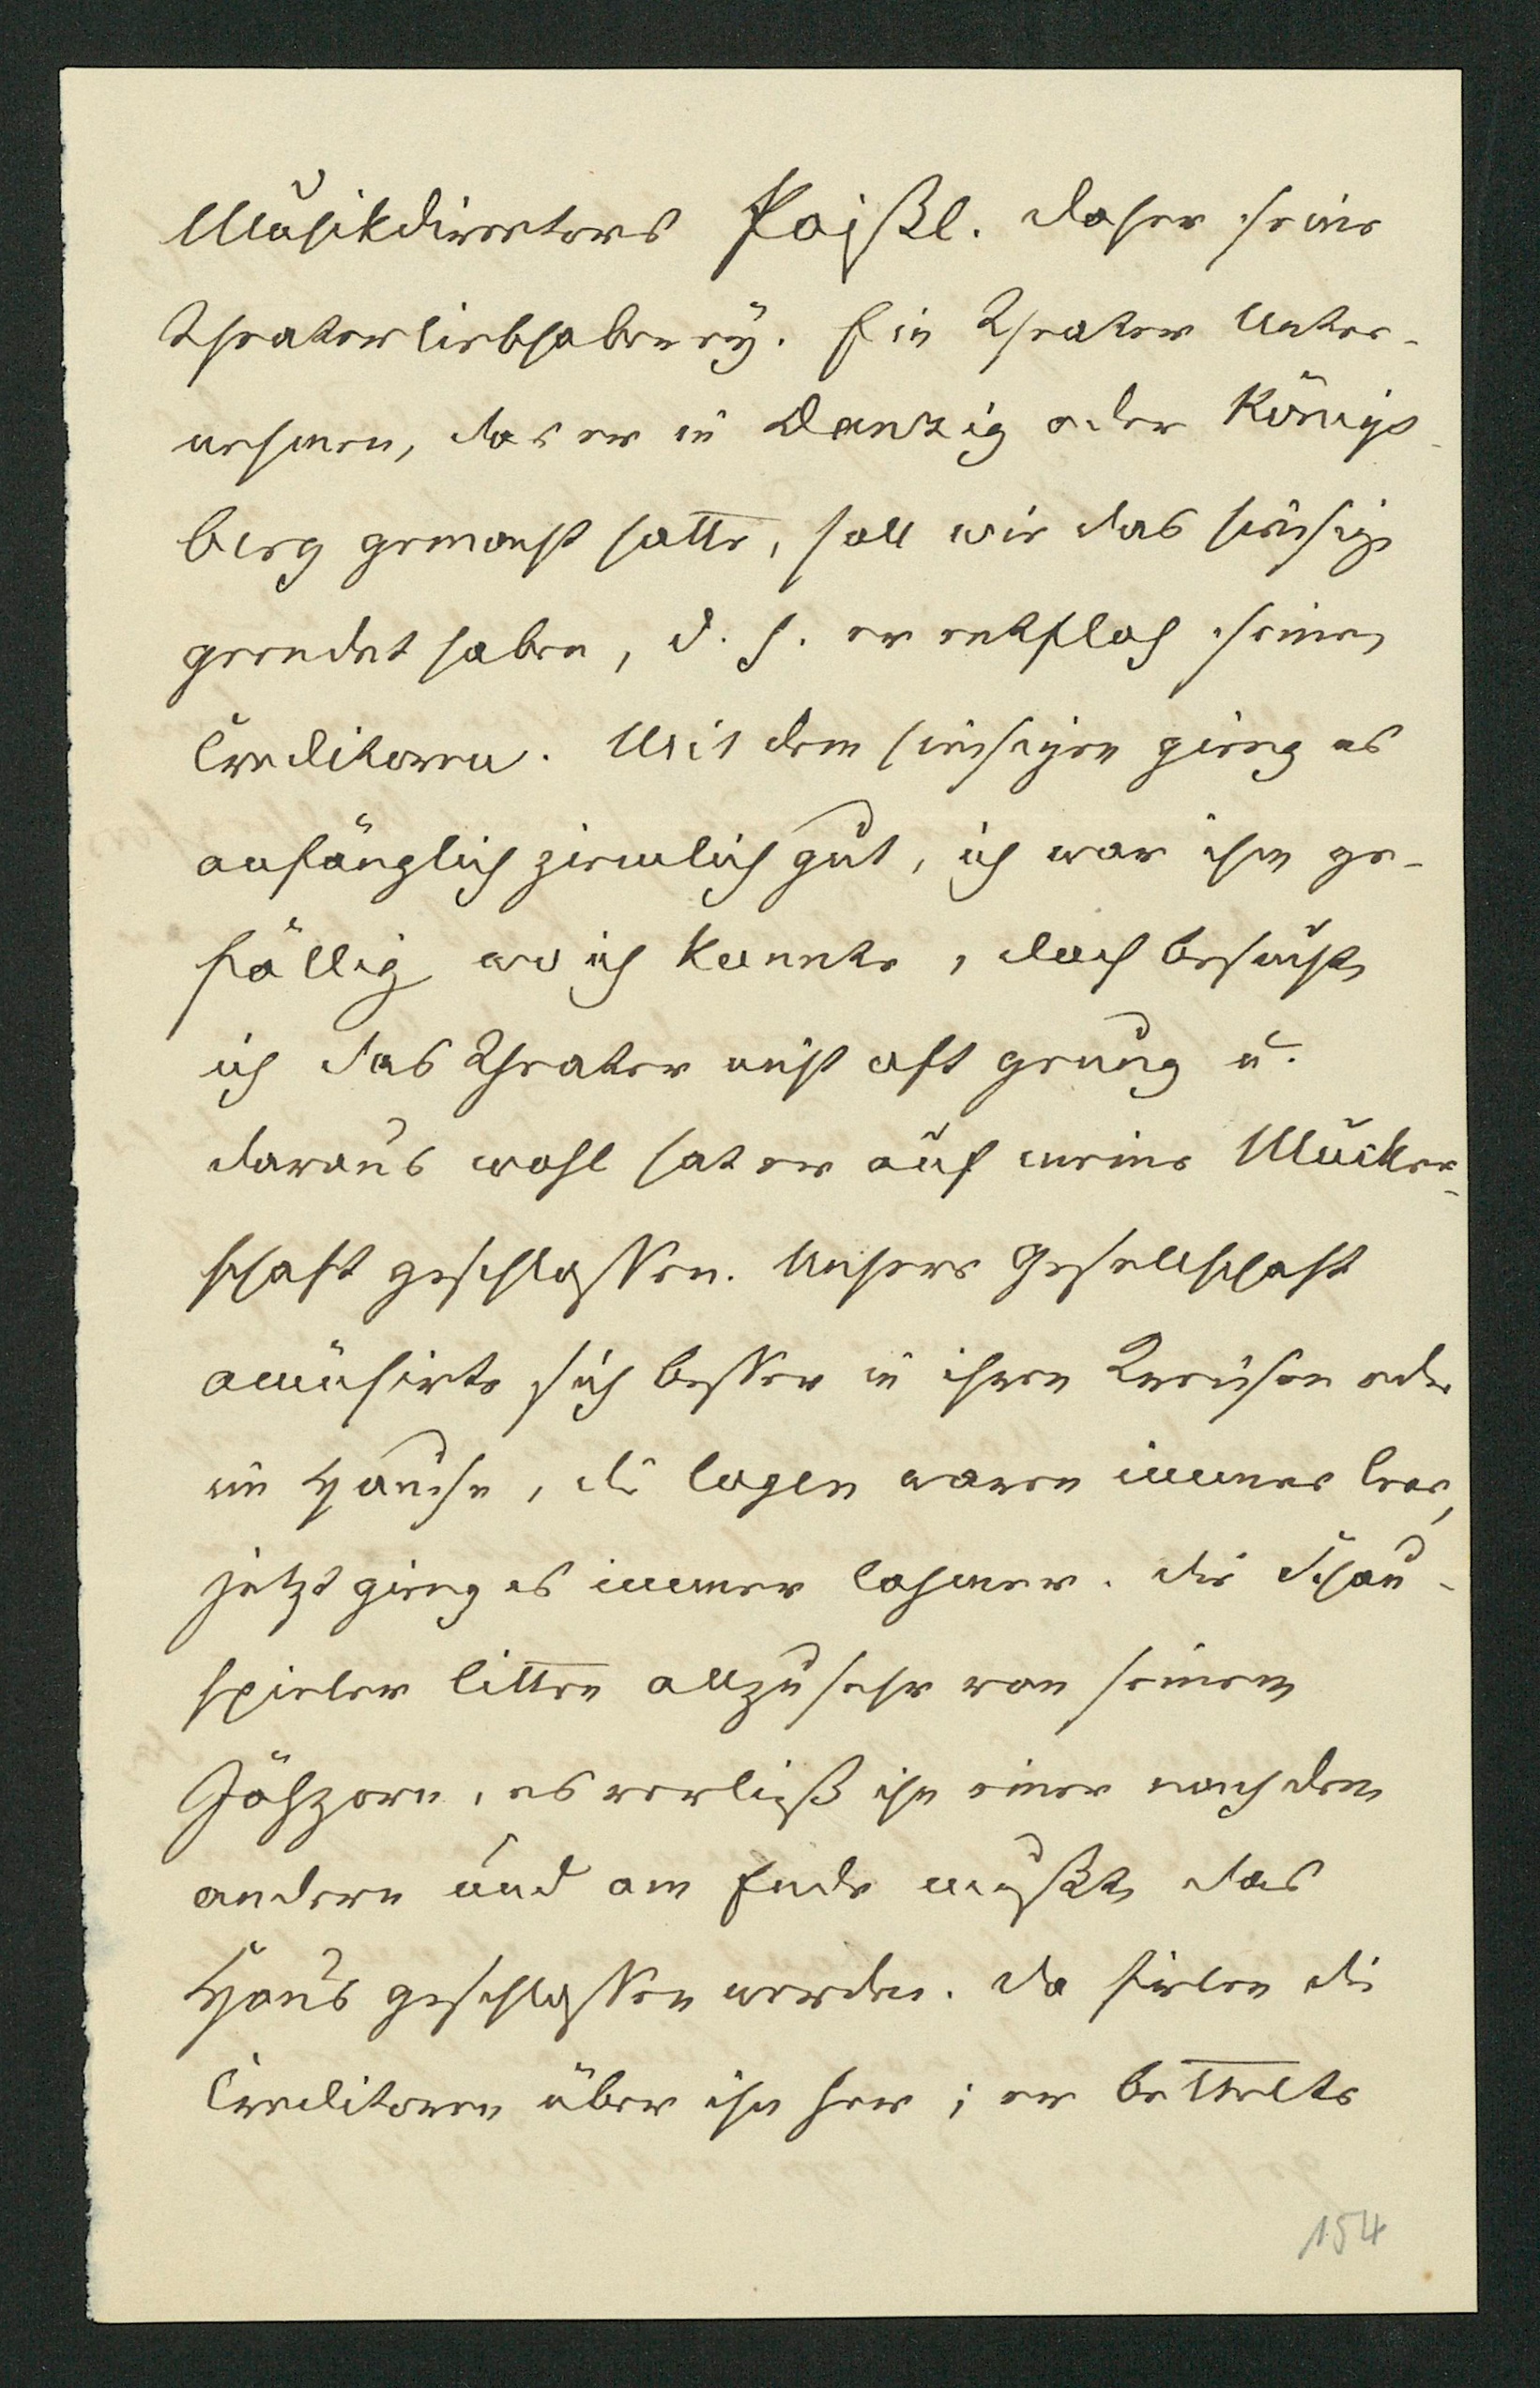 Musikdirectors Poißl. daher seine
Theaterliebhaberey. Ein Theater Unter-
nehmen, das er in Danzig oder Königs-
berg gemacht hatte, soll wie das hiesige
geendet haben, d. h. er entfloh seinen
Creditoren. Mit dem hiesigen gieng es
anfänglich ziemlich gut, ich war ihm ge-
fällig wo ich konnte, doch besuchte
ich das Theater nicht oft genug u.
daraus wohl hat er auf meine Mucker-
schaft geschlossen. Unsere Gesellschaft
amüsirte sich besser in ihren Kreisen oder
im Hause, die Logen waren immer leer,
jetzt gieng es immer lahmer. die Schau-
spieler litten allzusehr von seinem
Jähzorn, es verließ ihn einer nach dem
andern und am Ende mußte das
Haus geschlossen werden. da fielen die
Creditoren über ihn her; er bettelte
154